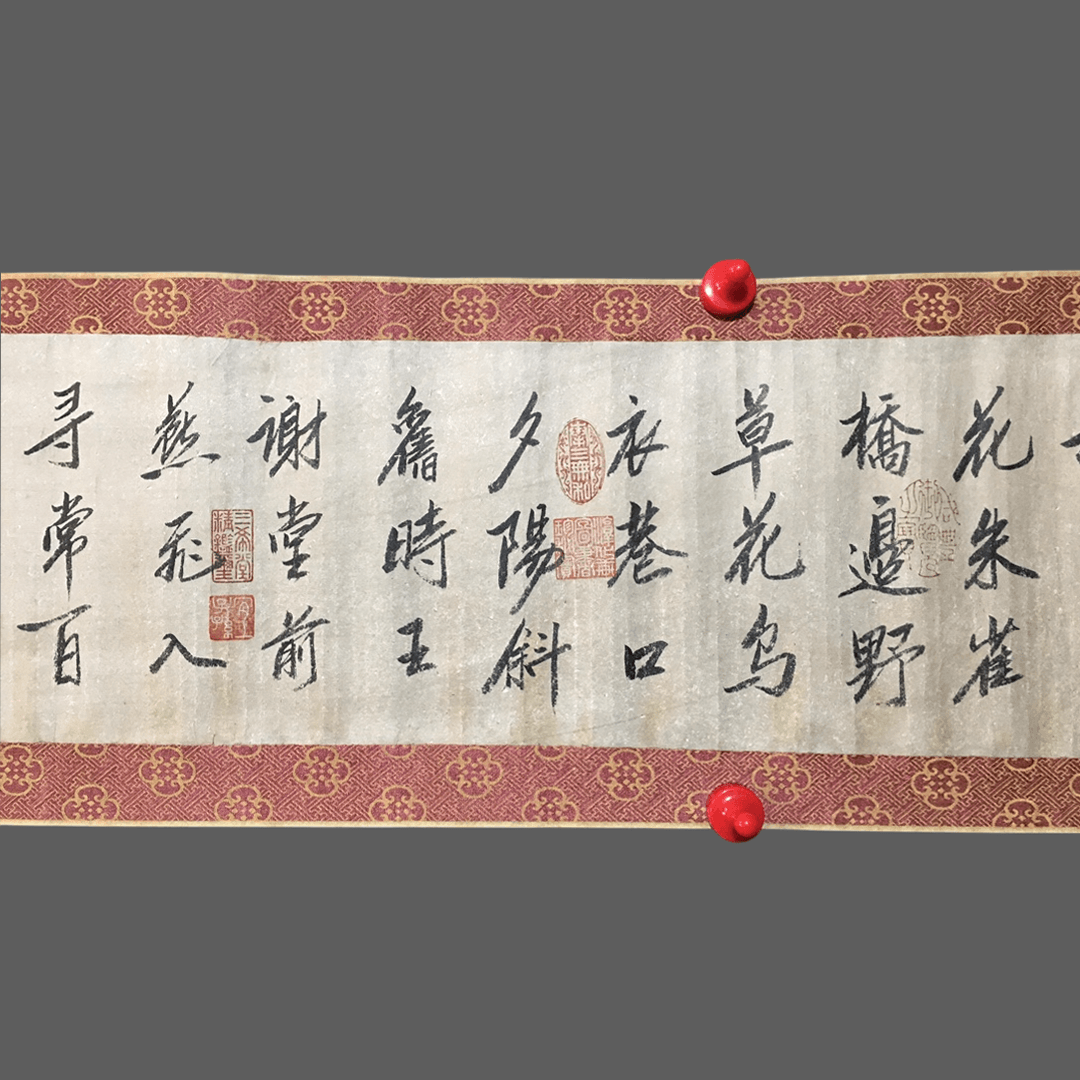 花朱雀
橋邊野
草花烏
衣巷口
夕陽斜
舊時王
謝堂前
燕飛入
尋常百